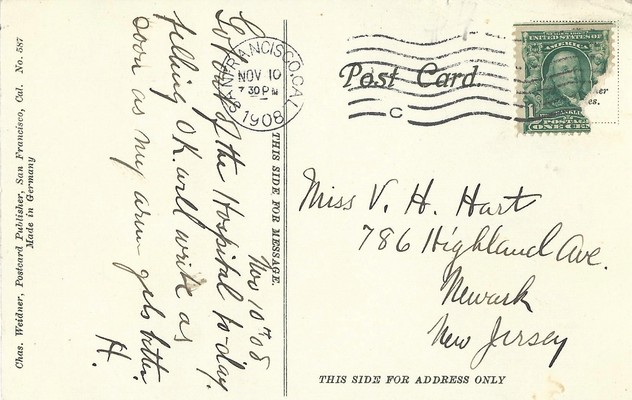 Post Card
SAN FRANCISCO, CAL.
NOV 10
7 30 PM
1908
C
UNITED STATES OF
AMERICA
FRANKLIN
1
POSTAGE
ONE CEN
her
es.
THIS SIDE FOR MESSAGE.
Nov 10th 08
Got out of the Hospital to-day.
feeling O.K. will write as
soon as my arm gets better.
H.
Miss V. H. Hart
786 Highland Ave.
Newark
New Jersey
THIS SIDE FOR ADDRESS ONLY
Chas. Weidner, Postcard Publisher, San Francisco, Cal. No. 587
Made in Germany